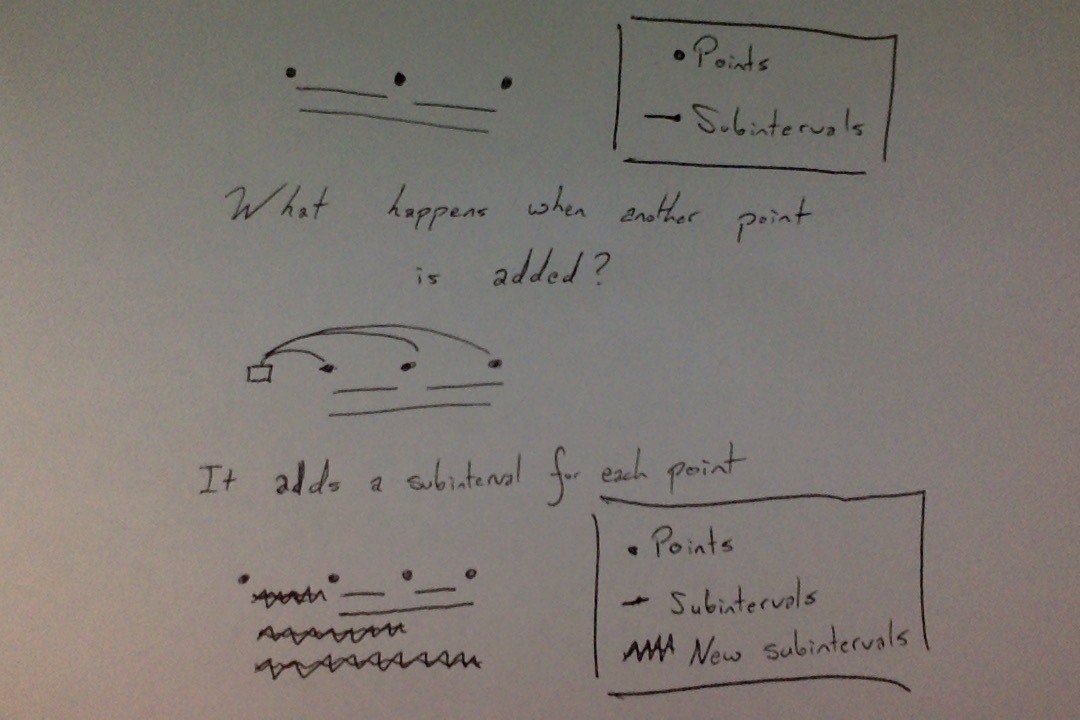 Points
Subintervals
What happens when another point
is added?
It adds a subinterval for each point
Points
Subintervals
New subintervals